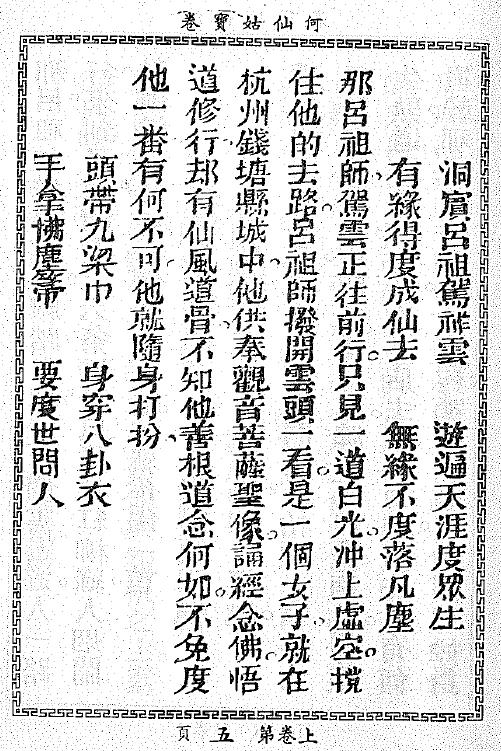 何仙姑寶卷
洞賓呂祖駕祥雲　遊遍天涯度眾生
有緣得度成仙去　無緣不度落凡塵
那呂祖師。駕雲正往前行。只見一道白光。冲上虛空。攩
住他的去路。呂祖師撥開雲頭。一看。是一個女子。就在
杭州錢塘縣城中。他供奉觀音菩薩聖像。誦經念佛。悟
道修行。却有仙風道骨。不知他善根道念何如。不免度
他一番。有何不可。他就隨身打扮。
頭帶九梁巾　身穿八卦衣
手拿拂塵箒　要度世間人
上卷第五頁